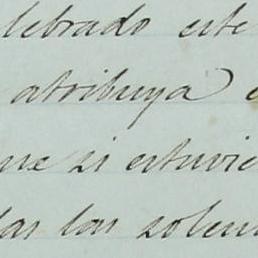 lebrado este
atribuya
ue si estuvie
das las solem